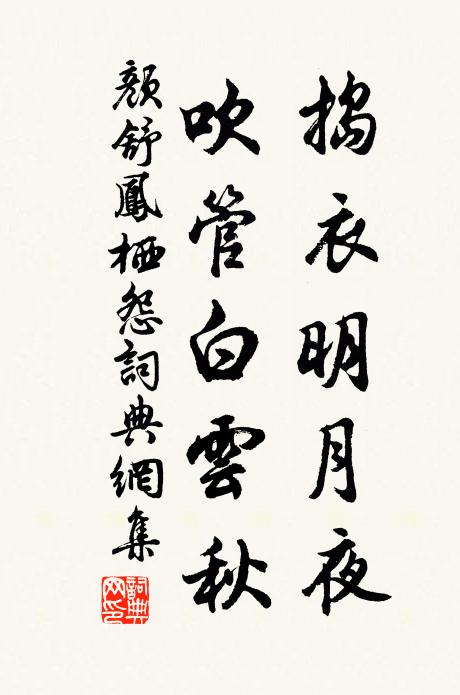 搗衣明月夜
吹管白雲秋
顏舒鳳栖怨詞典網集
詞典網印